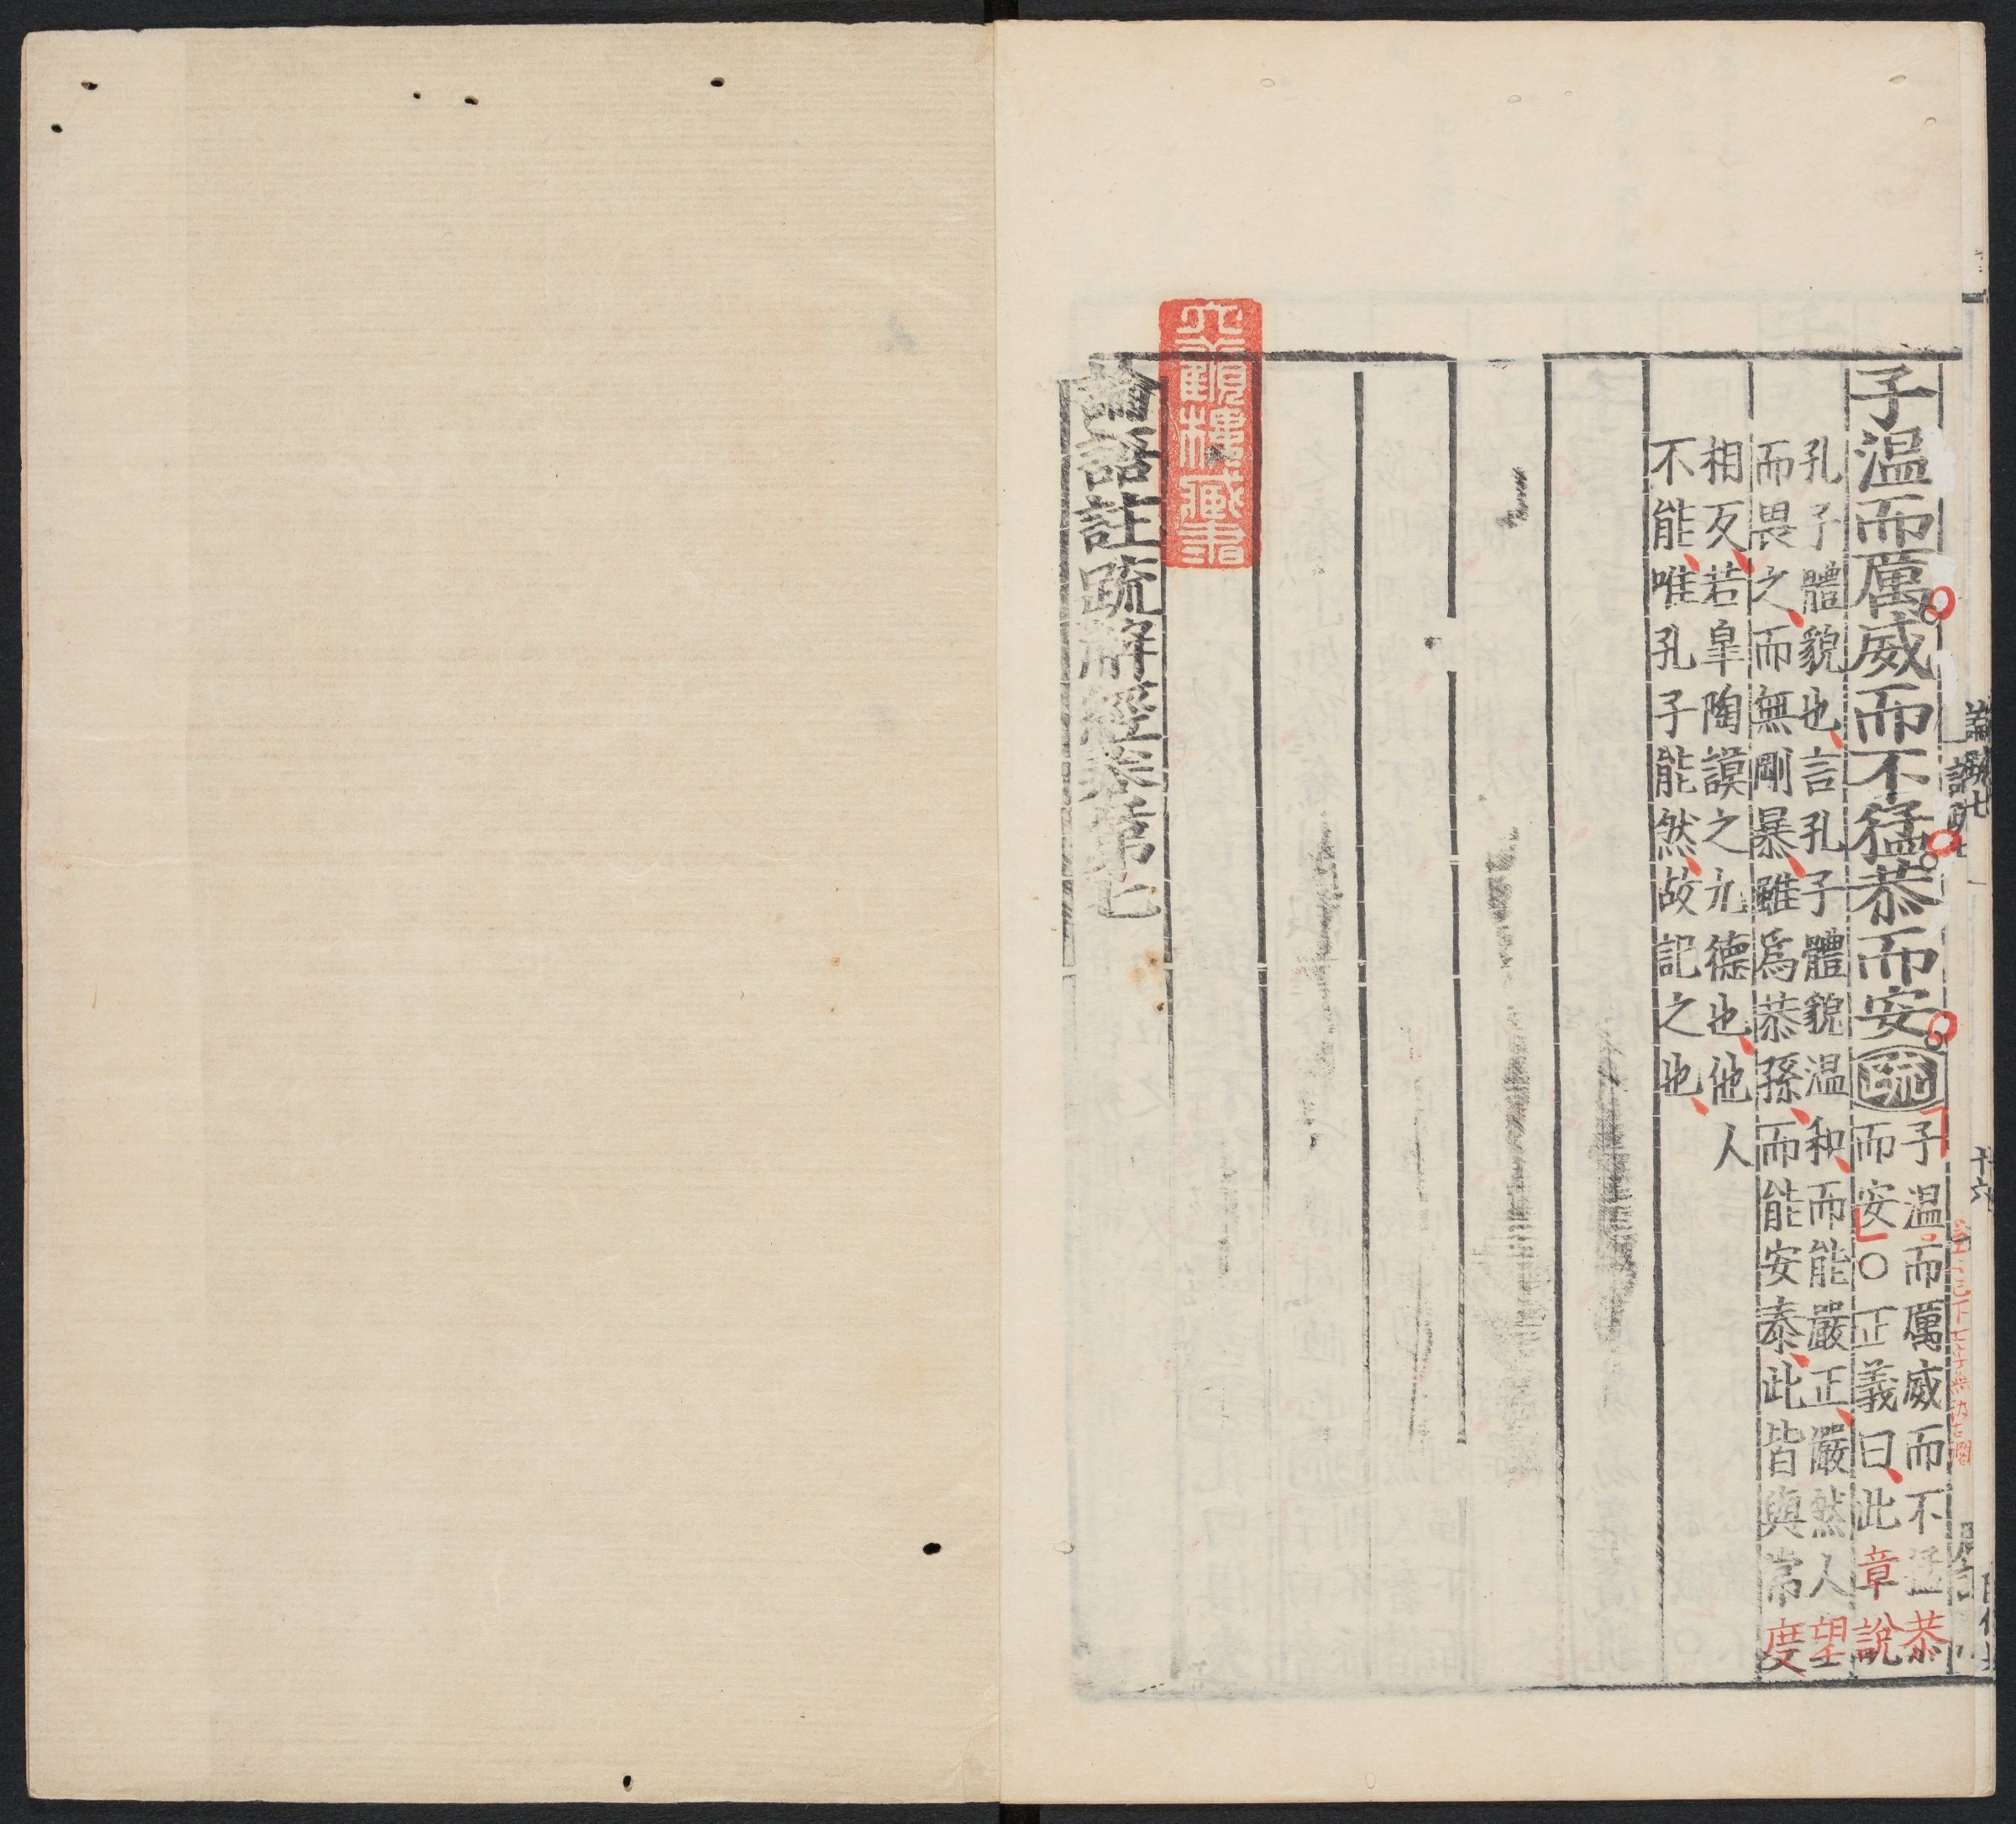 子温而厲威而不猛恭而安疏
子温而厲威而不猛恭
而安○正義曰此章說
孔子體貌也言孔子體貌温和而能嚴正嚴然人望
而畏之而無剛暴雖爲恭孫而能安泰此皆與常度
相反若臯陶謨之九德也他人
不能唯孔子能然故記之也
六觀樓藏書
論語註疏解經卷第七